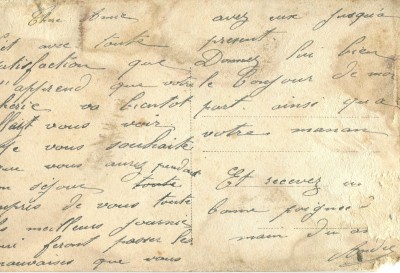 Chère Amie
Est avec toute
satisfaction que
j'apprend que votre
chérie va bientot
allait vous voir
Je vous souhaite
que vous aurez pendant
son séjour toute
auprès de vous toute
les meilleurs journée
qui feront passer les
mauvaises que vous
avez eux jusqu'à
present.
Donnez lui bien
le bonjour de ma
part ainsi qu'a
votre maman
Et recevez un
bonne poignee d
main d'un